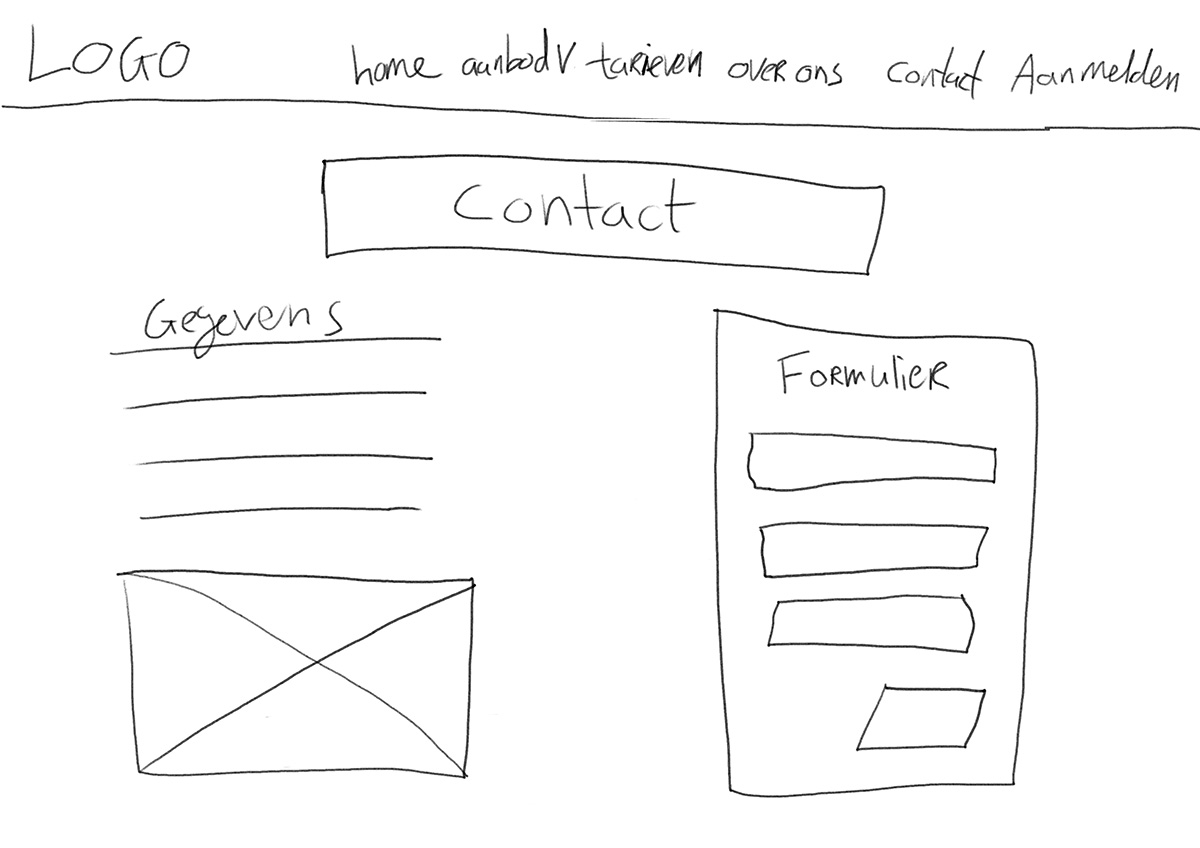 LOGO home aanbod V tarieven over ons Contact Aanmelden
Contact
Gegevens
Formulier